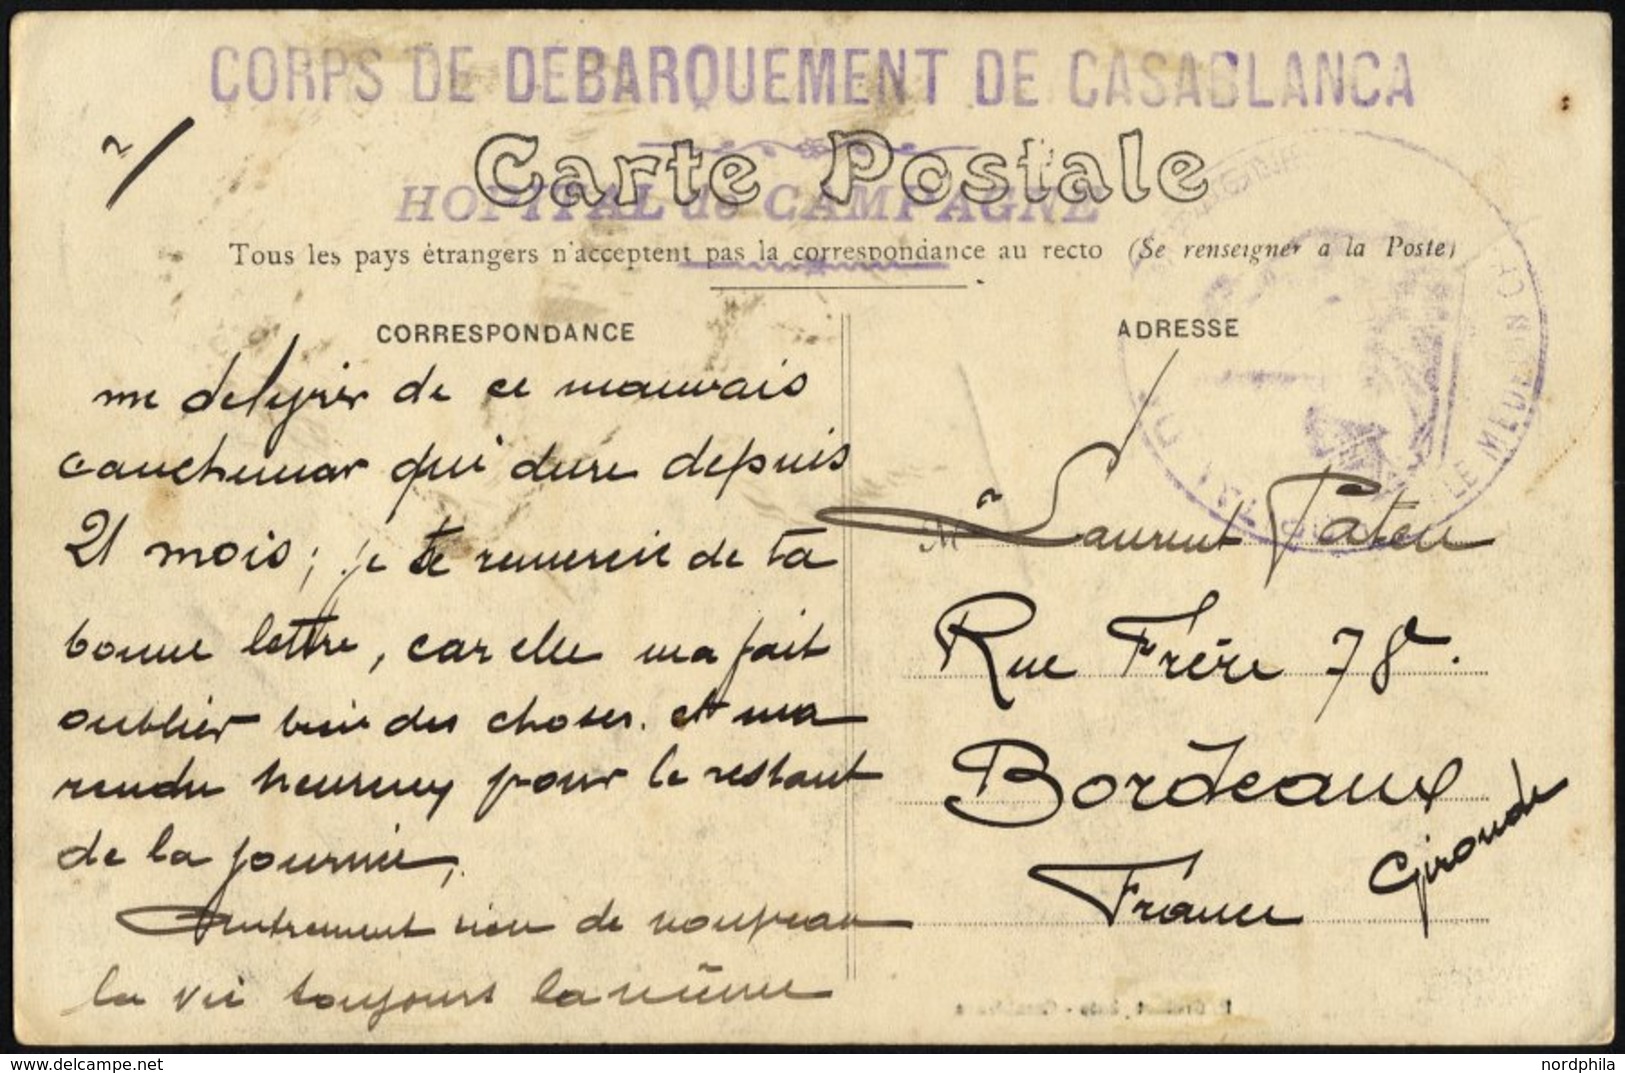 CORPS DE DEBARQUEMENT DE CASABLANCA
2/
Carte Postale
HOPITAL de CAMPAGNE
Tous les pays étrangers n'acceptent pas la correspondance au recto (Se renseigner a la Poste)
CORRESPONDANCE
me de de ce mauvais
cauchemar qui dure depuis
21 mois; je te remercie de ta
bonne lettre, car elle ma fait
oublier bien des choses. et ma
rendu heureux pour le restant
de la journée,
Autrement rien de nouveau
la vie toujours la même
ADRESSE
LE MEDECIN
Mr Laurent Pateu
Rue Frère 78.
Bordeaux
Gironde
France
nordphila
delcampe.net